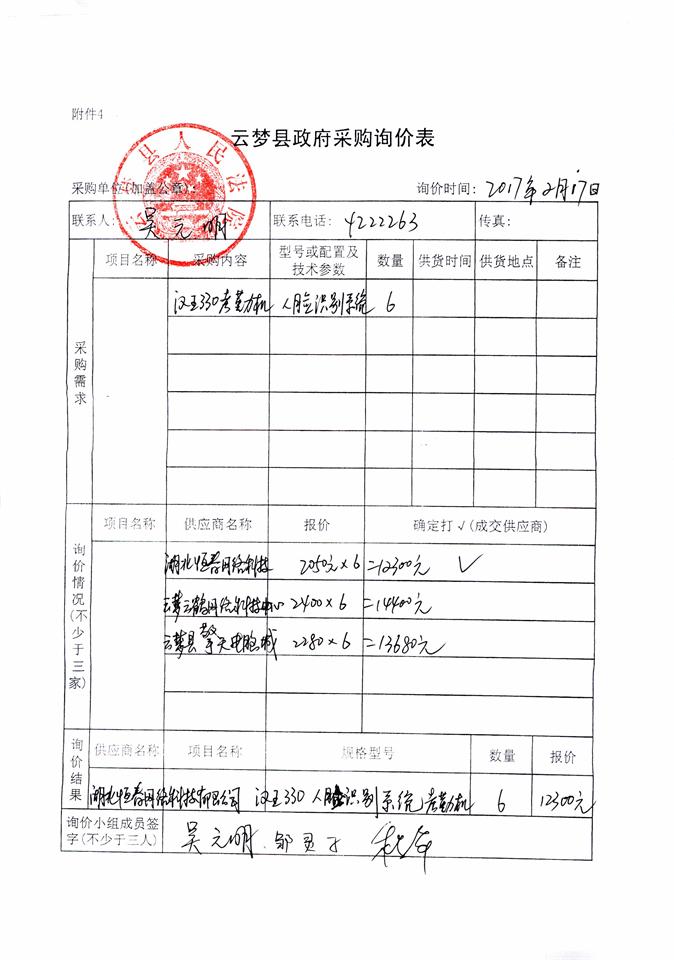 附件4
云梦县政府采购询价表
县人民法院
采购单位(加盖公章): 询价时间: 2017年2月17日
联系人: 吴元明 联系电话: 4222263 传真:
采购需求
项目名称 采购内容 型号或配置及技术参数 数量 供货时间 供货地点 备注
汉王330考勤机 人脸识别系统 6
询价情况(不少于三家)
项目名称 供应商名称 报价 确定打√(成交供应商)
湖北恒春网络科技 2050元×6 =12300元 √
云梦云鹤网络科技中心 2400×6 =14400元
云梦县擎天电脑城 2280×6 =13680元
询价结果
供应商名称 项目名称 规格型号 数量 报价
湖北恒春网络科技有限公司 汉王330 人脸识别系统考勤机 6 12300元
询价小组成员签字(不少于三人) 吴元明 邹